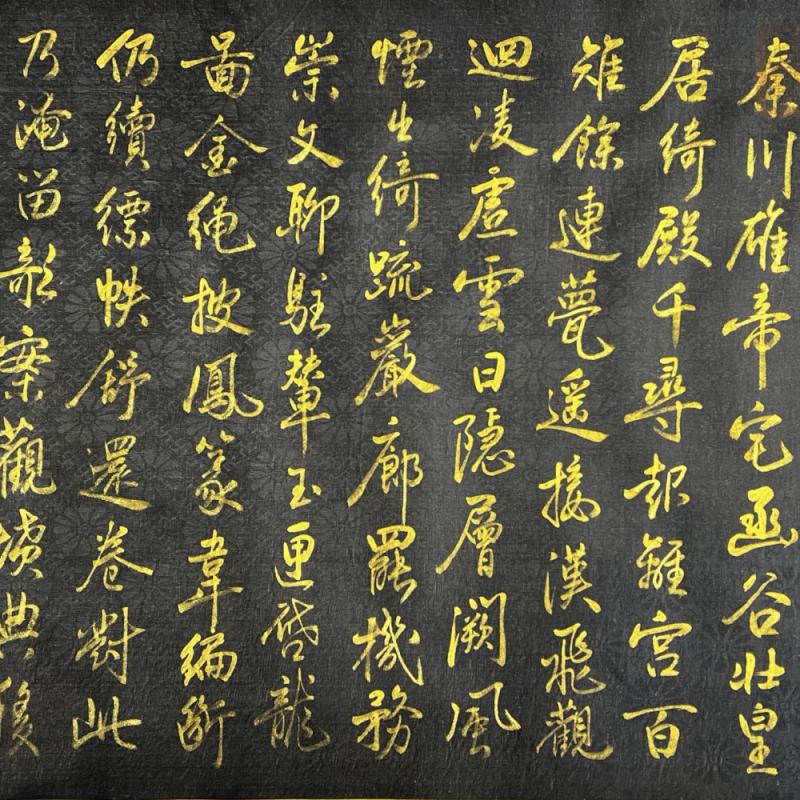 秦川雄帝宅函谷壯皇
居綺殿千尋起離宮百
雉餘連甍遥接漢飛觀
迴凌虛雲日隱層闕風
煙出綺疏巖廊罷機務
崇文聊駐輦玉匣啓龍
圖金繩披鳳篆韋編斷
仍續縹帙舒還卷對此
乃淹留欹案觀墳典